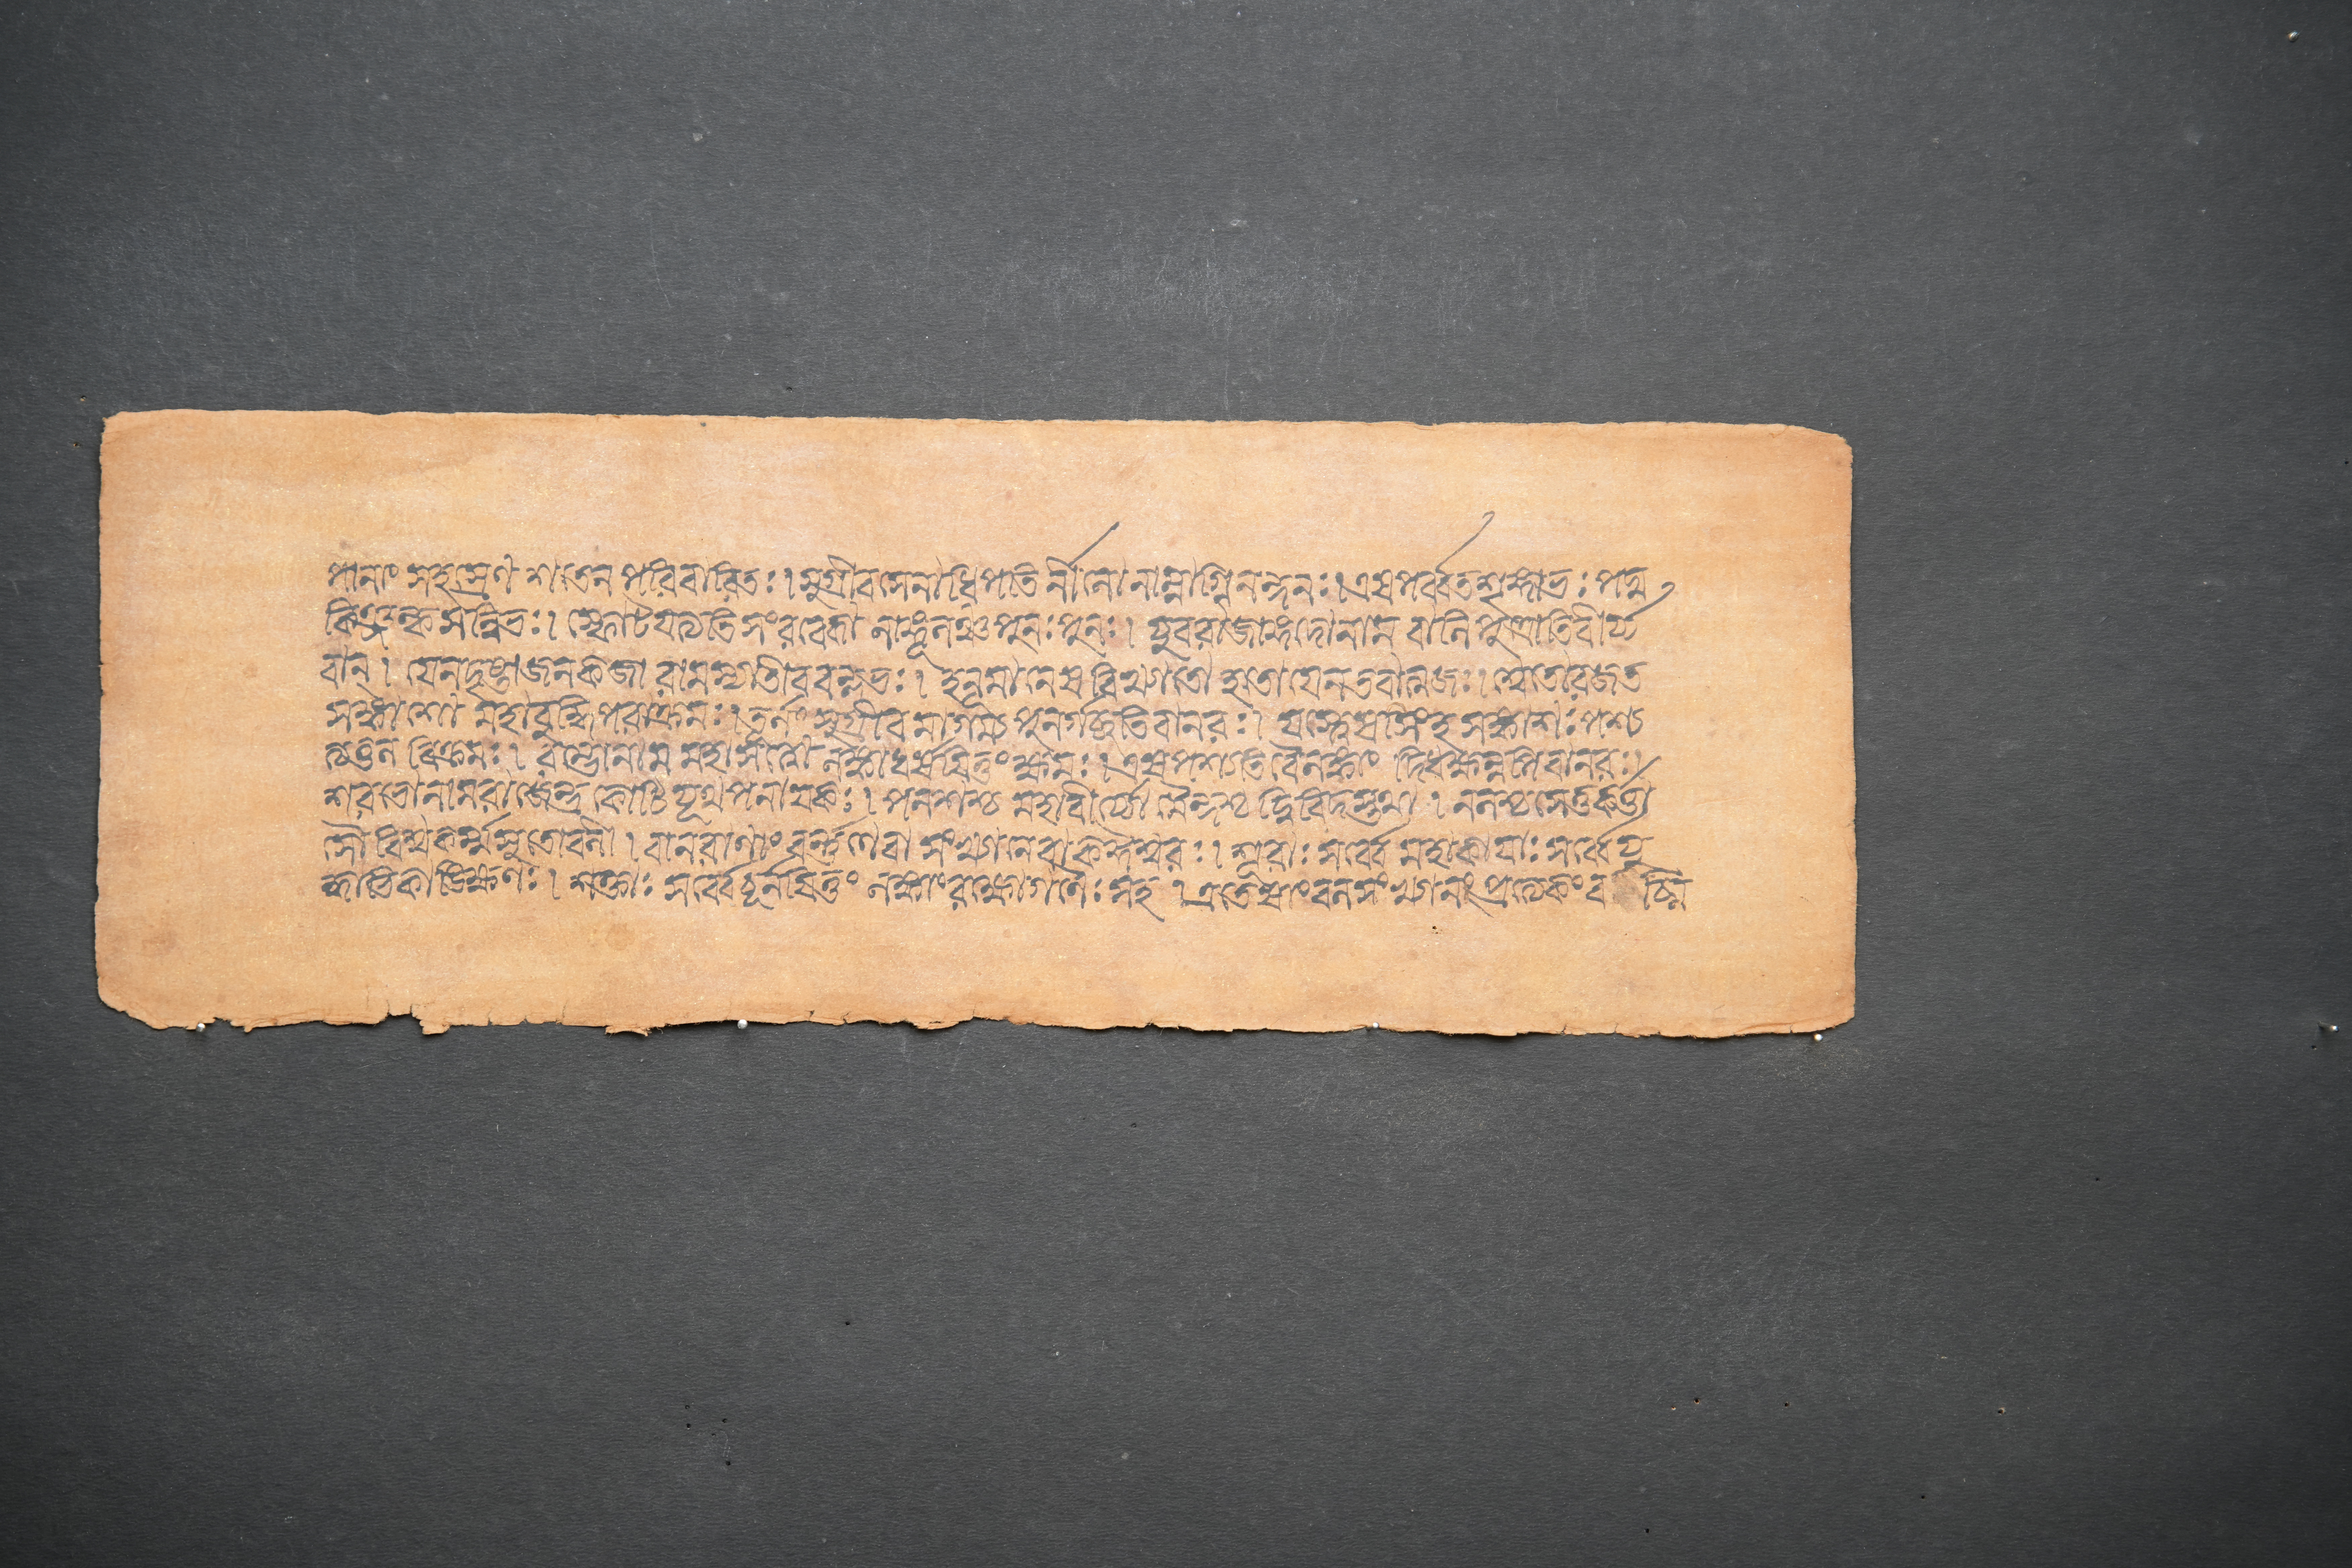 পানাং সহস্রেণ শতেন পরিবারিতঃ। সুগ্রীবসেনাধিপতির্নীলো নাম্নাগ্নিনন্দনঃ। এষ পর্ব্বতশৃঙ্গাভঃ পদ্ম
কিঞ্জল্কসন্নিভঃ। স্ফোটযত্যতি সংরব্ধো লাঙ্গূলঞ্চ পুনঃ পুনঃ। যুবরাজোঙ্গদো নাম বালিপুত্রাতিবীর্য্য
বান্। যেন দৃষ্টা জনকজা রামস্যাতীব বল্লভঃ। হনূমানেষ বিখ্যাতো হতো যেন তবাত্মজঃ। শ্বেতো রজত
সঙ্কাশো মহাবুদ্ধিপরাক্রমঃ। তূর্নং সুগ্রীবমাগম্য পুনর্গচ্ছতি বানরঃ। যস্ত্বেষ সিংহসঙ্কাশঃ পশ্য
ত্যতুল বিক্রমঃ। রম্ভো নাম মহাসত্বো লঙ্কাং ধর্ষযিতুং ক্ষমঃ। এষ পশ্যতি বৈ লঙ্কাং দিধক্ষন্নপি বানরঃ।
শরভো নাম রাজেন্দ্র কোটিযূথপনাযকঃ। পনশশ্চ মহাবীর্য্যো মৈন্দশ্চ দ্বিবিদস্তথা। নলশ্চ সেতুকর্ত্তা
সৌ বিশ্বকর্ম্মসুতো বলী। বানরাণাং বর্ন্ননে বা সংখ্যানে বা ক ঈশ্বরঃ। শূরাঃ সর্ব্বে মহাকাযাঃ সর্ব্বে যু
দ্ধাভিকাঙ্ক্ষিণঃ। শক্তাঃ সর্ব্বে চূর্নযিতুং লঙ্কাং রক্ষোগণৈঃ সহ। এতেষাং বলসংখ্যানং প্রত্যেকং ব চ্মি